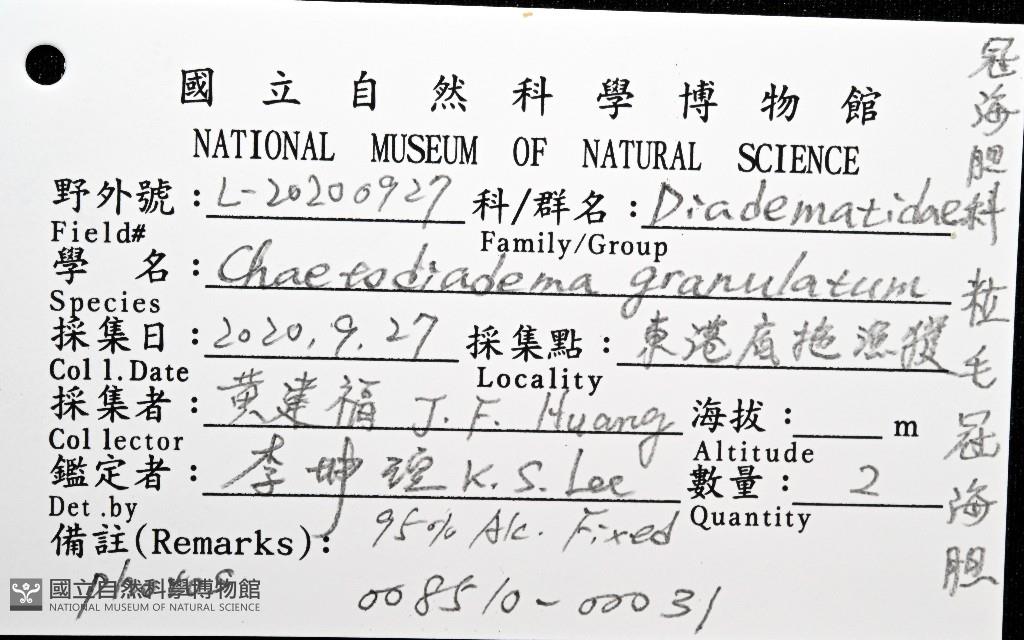 國立自然科學博物館
NATIONAL MUSEUM OF NATURAL SCIENCE
野外號：L-20200927 科/群名：Diadematidae
Field# Family/Group
學 名：Chaetodiadema granulatum
Species
採集日：2020.9.27 採集點：東港底拖漁獲
Coll.Date Locality
採集者：黃建福 J. F. Huang 海拔： m
Collector Altitude
鑑定者：李坤瑄 K. S. Lee 數量：2
Det.by Quantity
備註(Remarks)： 95% Alc. Fixed
photos
008510-00031
冠海胆科 粒毛冠海胆
國立自然科學博物館
NATIONAL MUSEUM OF NATURAL SCIENCE